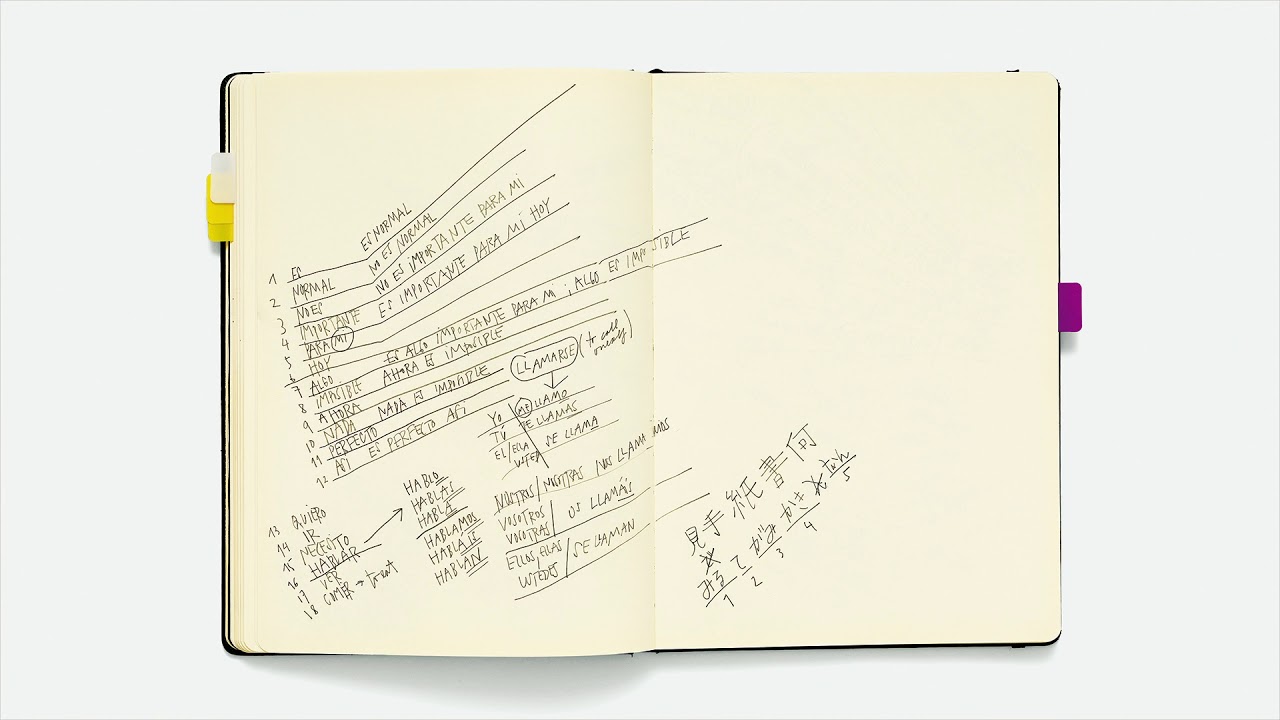 1 ES ES NORMAL
2 NORMAL ES NORMAL
3 NO ES NO ES IMPORTANTE PARA MI
4 IMPORTANTE ES IMPORTANTE PARA MÍ HOY
5 PARA (MI)
6 HOY
7 ALGO ES ALGO IMPORTANTE PARA MI ; ALGO ES IMPOSIBLE
8 IMPOSIBLE AHORA ES IMPOSIBLE
9 AHORA
10 NADA NADA ES IMPOSIBLE
11 PERFECTO
12 ASÍ ES PERFECTO ASÍ
13 QUIERO
14 IR
15 NECESITO
16 HABLAR
17 VER
18 COMER → to eat
HABLO
HABLAS
HABLA
HABLAMOS
HABLÁIS
HABLAN
LLAMARSE (to call
YO ME LLAMO
TÚ TE LLAMAS
EL/ELLA SE LLAMA
USTED
NOSOTROS/NOSOTRAS NOS LLAMAMOS
VOSOTROS
VOSOTRAS OS LLAMÁIS
ELLOS, ELLAS
USTEDES SE LLAMAN
見手紙書何
みる て がみ かき なん
1 2 3 4 5